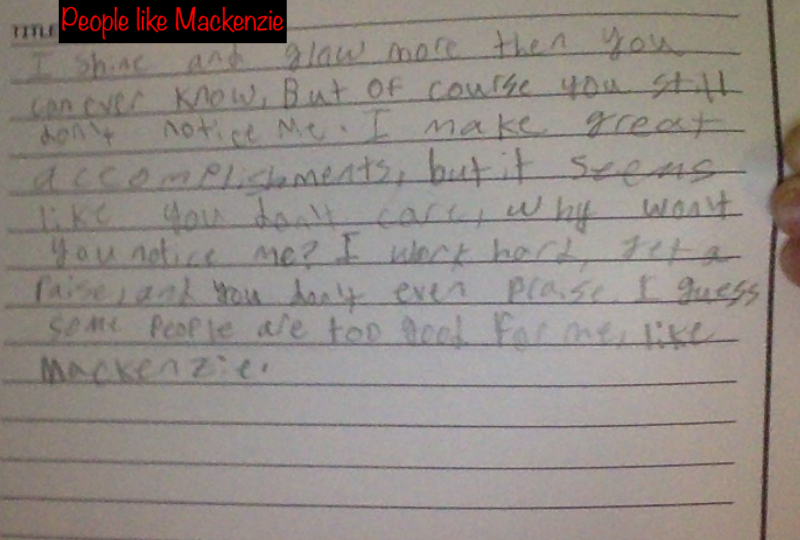 TITLE People like Mackenzie
I shine and glow more then you
can ever know, But of course you still
don't notice me. I make great
accomplishments, but it seems
like you don't care, why won't
you notice me? I work hard, get a
raise, and you don't even praise. I guess
some people are too good for me, like
Mackenzie.